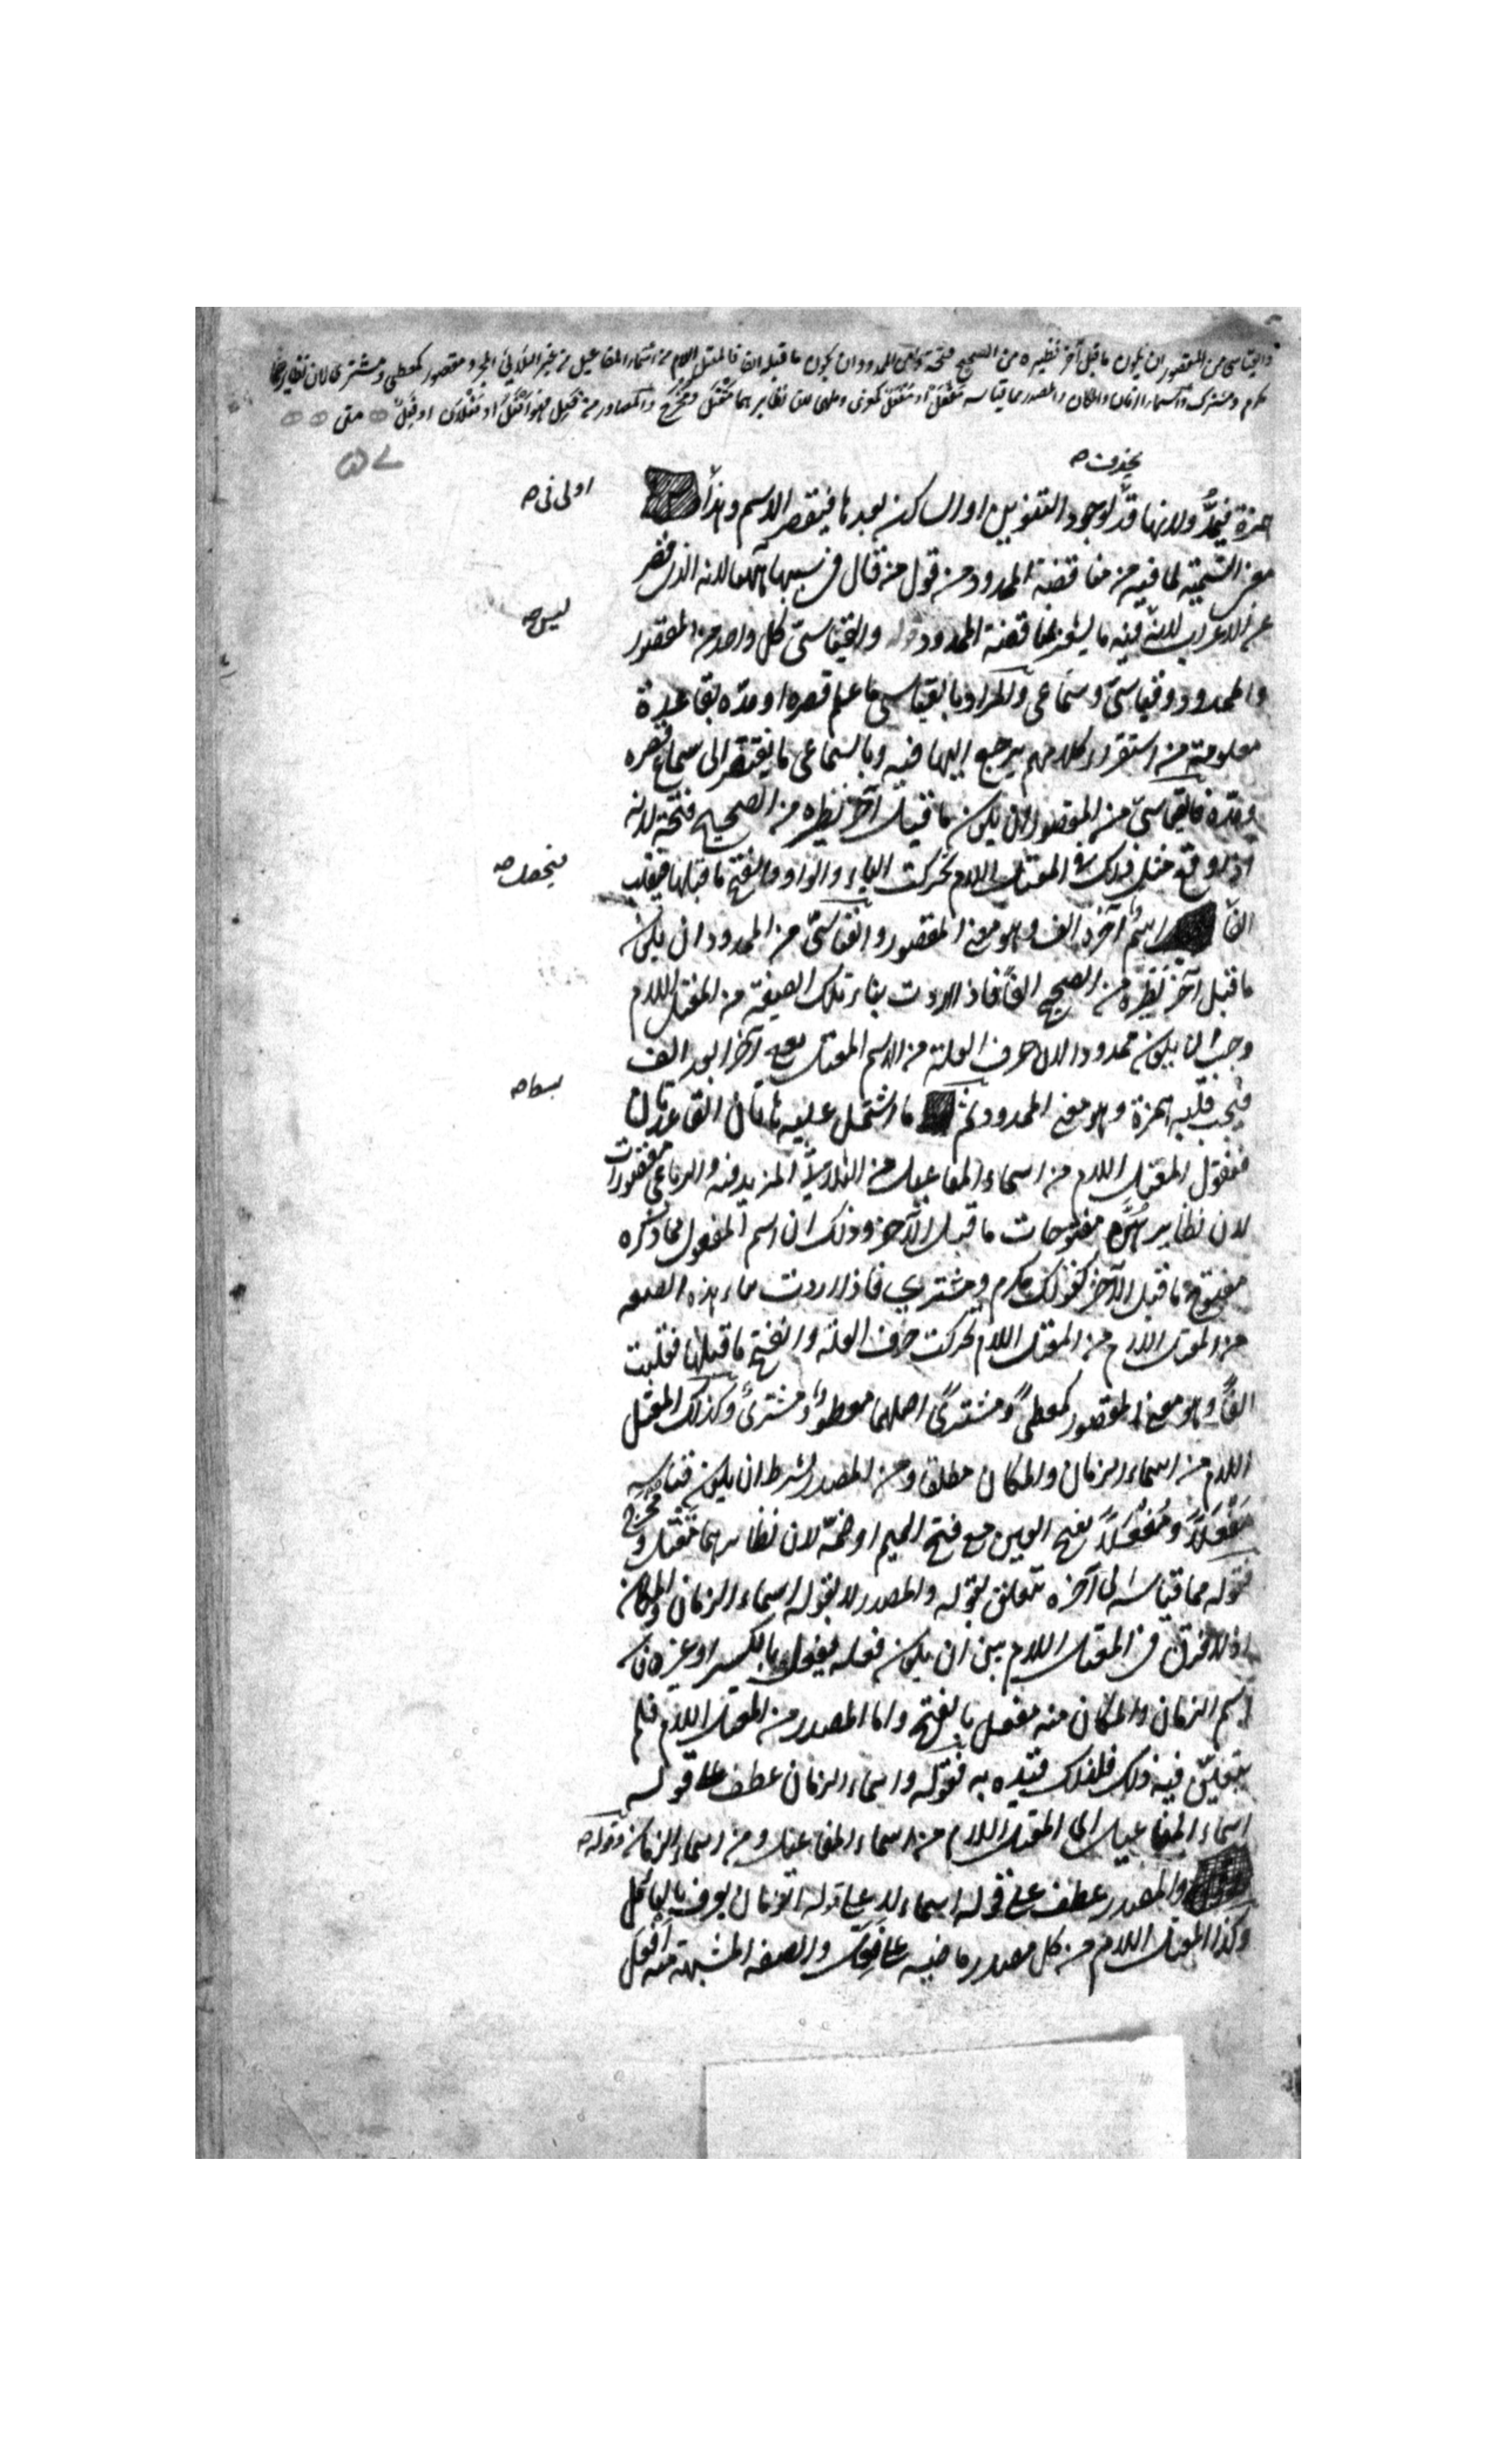 والقياسي من المقصور ان يكون ما قبل آخر نظيره من الصحيح فتحة ومن الممدود ان يكون ما قبله الفا فالمعتل اللام من اسماء المفاعيل من غير الثلاثي المجرد مقصور كمعطى ومشترى لان نظايرهما
مكرم ومشترك واسماء الزمان والمكان والمصدر مما قياسه مَفْعَل او مُفْعَل كمغزى وملهى لان نظايرهما مَقْتَل ومُخْرَج والمصادر من فَعِلَ فهو اَفْعَل او فَعْلان او فَعِلٌ متى
يحذف صح
همزة فيمدّ ولانها قد لوجود التنوين او الساكن بعدها فينقص الاسم وهذا
اولى في صح
معنى التسمية لما فيه من مناقضة الممدود من قول من قال في سببها انهما لانه الذي قصر
عن الاعراب لانه فيه ما يشعر بمناقضة الممدود قوله والقياسي كل واحد من المقصور
ليس صح
والممدود قياسي وسماعي والمراد بالقياسي ما علم قصره او مده بقاعدة
معلومة من استقراء كلامهم يرجع اليها فيه وبالسماعي ما يفتقر الى سماع قصره
ومده فالقياسي من المقصور ان يكون ما قبل آخر نظيره من الصحيح فتحة لانه
اذا وقع مثل ذلك في المعتل اللام تحركت الياء والواو وانفتح ما قبلها فيقلب
فيحصل صح
الفا اسم آخره الف وهو معنى المقصور والقياسي من الممدود ان يكون
ما قبل آخر نظيره من الصحيح الفا فاذا اردت بناء تلك الصيغة من المعتل اللام
وجب ان يكون ممدودا لان حرف العلة من الاسم المعتل يقع آخرا بعد الف
فيجب قلبه همزة وهو معنى الممدود ثم ما اشتمل عليه هاتان القاعدتان
فنقول المعتل اللام من اسماء المفاعيل من الثلاثي المزيد فيه والرباعي مقصورات
لان نظايرهن مفتوحات ما قبل الآخر وذلك ان اسم المفعول مما ذكره
مفتوح ما قبل الآخر كقولك مكرم ومشترى فاذا اردت بناء هذه الصيغة
من المعتل اللام من المعتل اللام تحركت حرف العلة وانفتح ما قبلها فقلبت
الفا وهو معنى المقصور كمعطى ومشترى اصلهما معطو ومشترى وكذلك المعتل
اللام من اسماء الزمان والمكان مطلقا ومن المصدر بشرط ان يكون قياسه
مَفْعَلا ومُفْعَلا بفتح العين مع فتح الميم او ضمه لان نظايرهما مَقْتَل ومُخْرَج
فقوله مما قياسه الى آخره متعلق بقوله والمصدر لا بقوله اسماء الزمان والمكان
اذ لا فرق في المعتل اللام بين ان يكون فعله يفعل بالكسر او غيره فان
اسم الزمان والمكان منه مفعل بالفتح واما المصدر من المعتل اللام فلم
يتعين فيه ذلك فلذلك قيده به فقوله واسماء الزمان عطف على قوله
اسماء المفاعيل اي المعتل اللام من اسماء المفاعيل ومن اسماء الزمان وقوله صح
والمصدر عطف على قوله اسماء لا على قوله الزمان يعرف بالتأمل
وكذا المعتل اللام من كل مصدر ماضيه على فَعِلَ والصفة المشبهة منه افعل